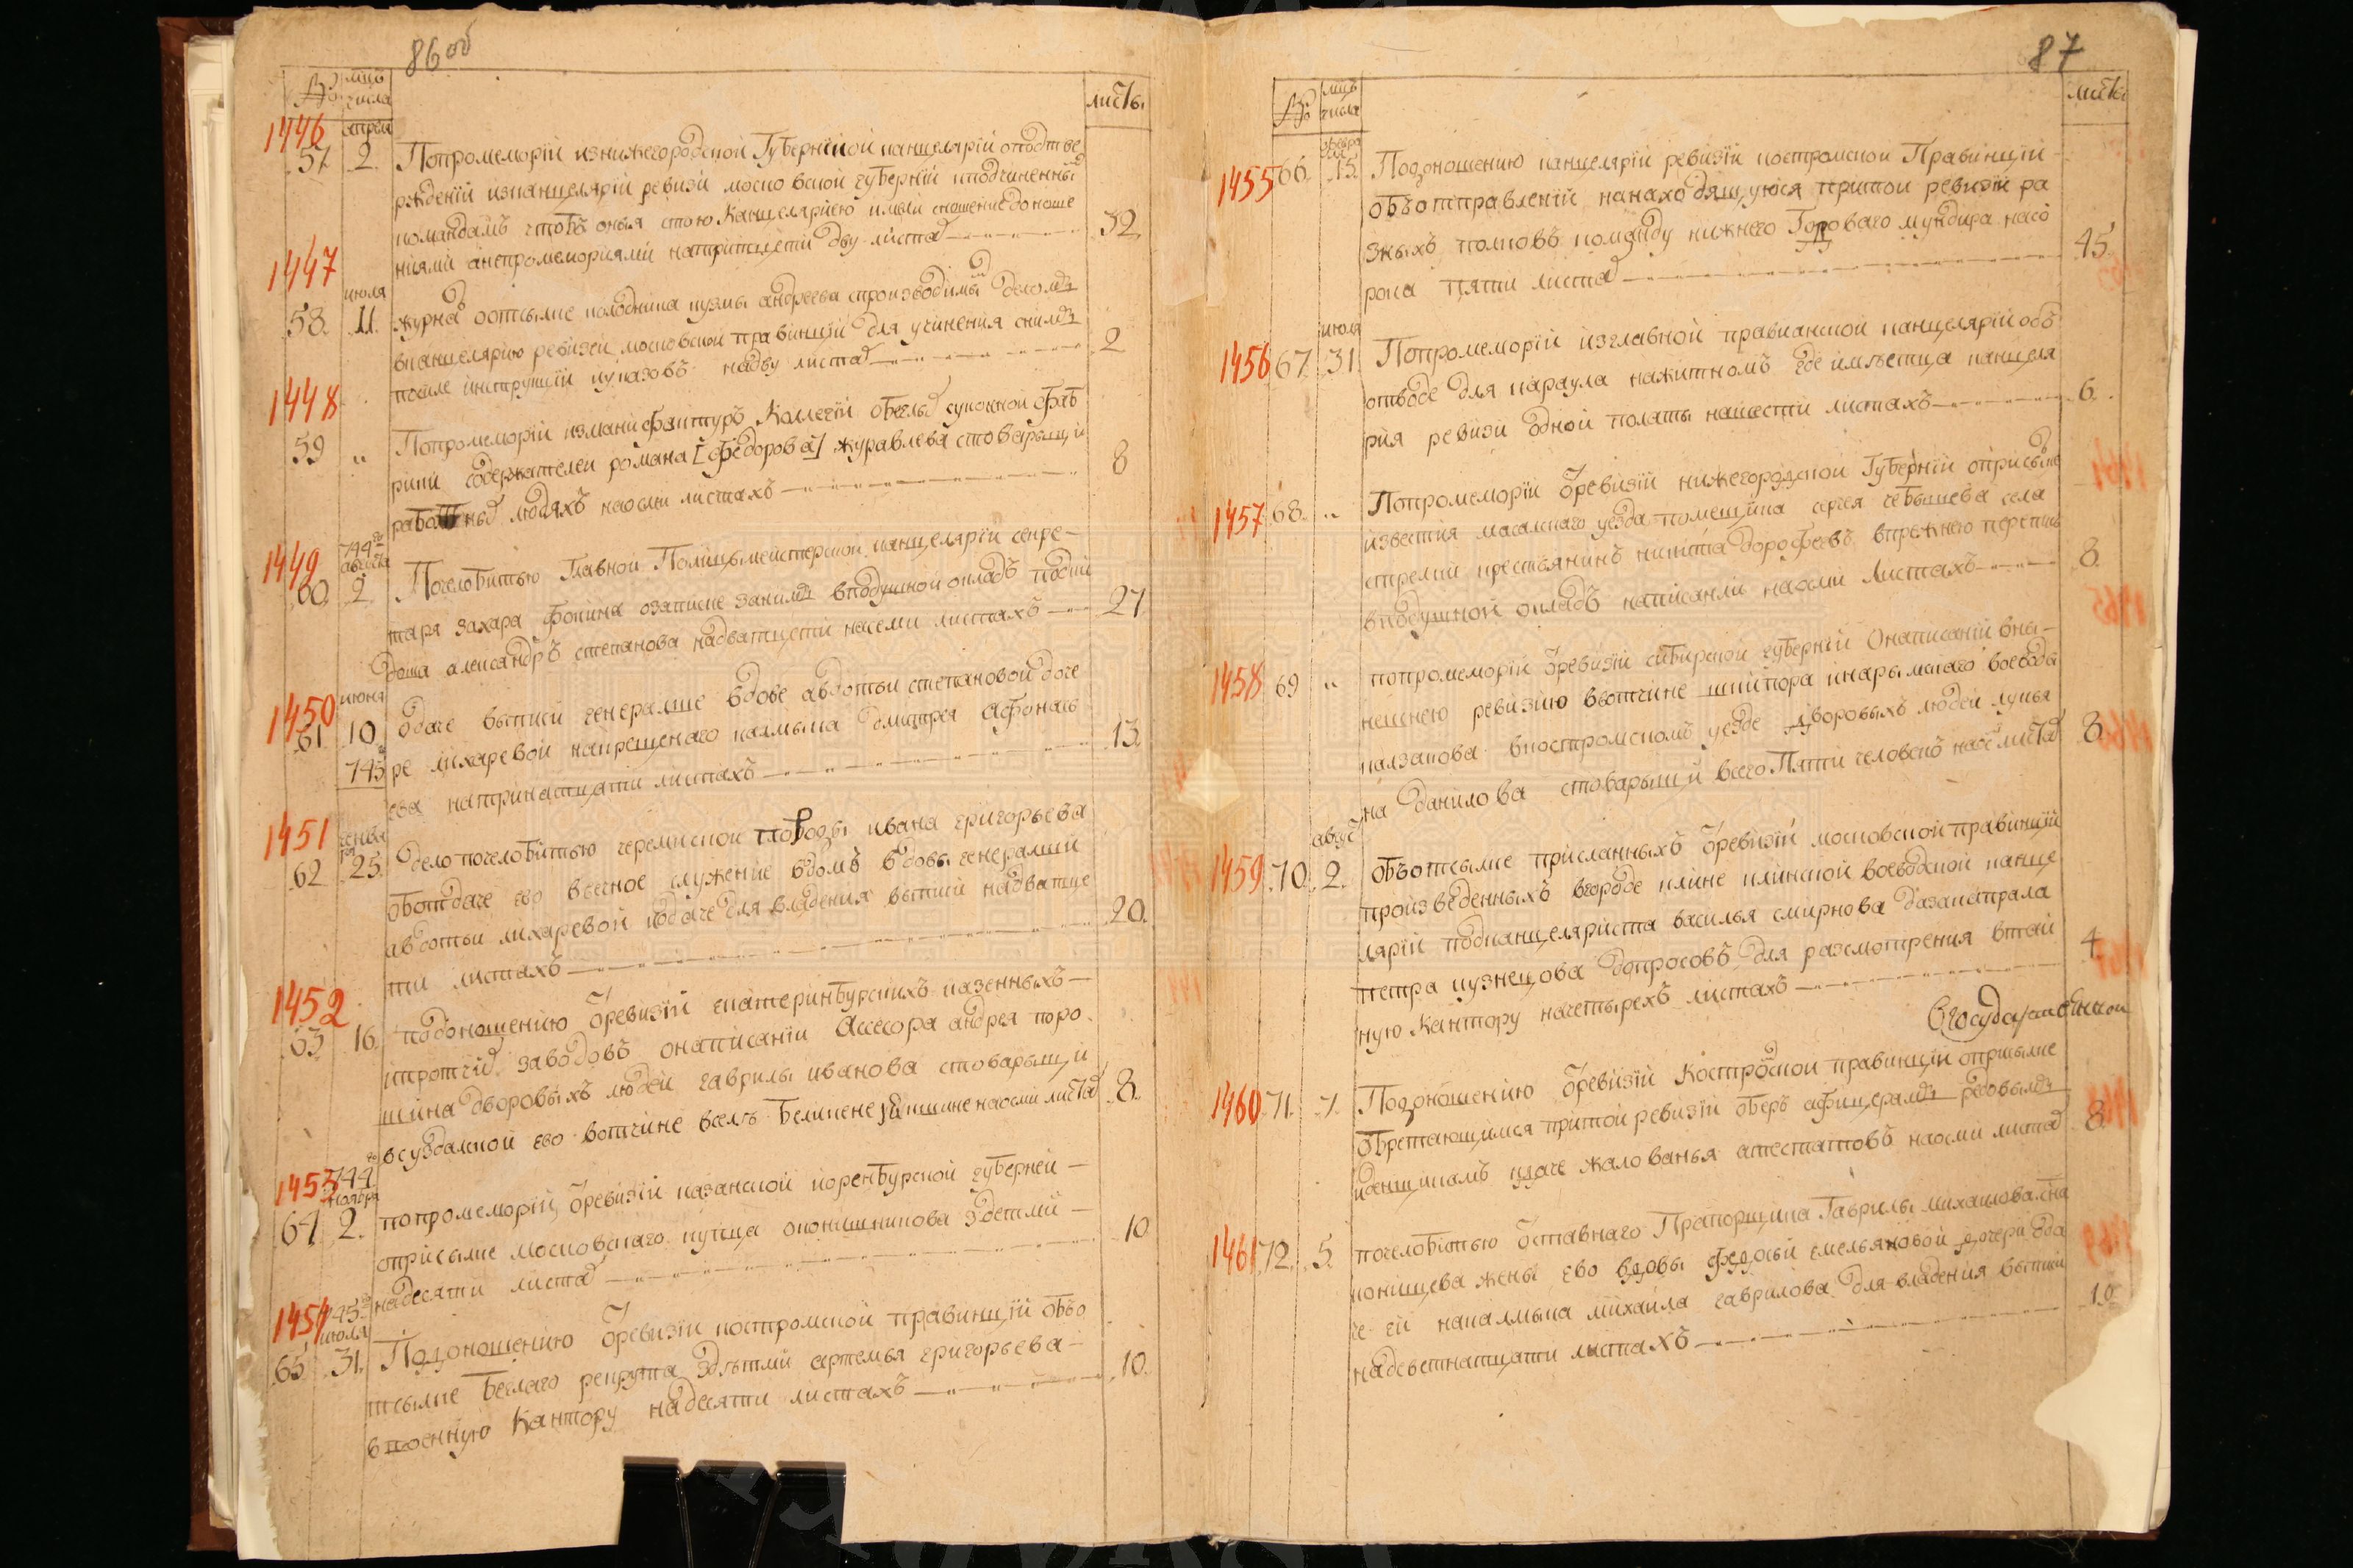 86об
№ мцъ числа листы
1446 апреля
57. 2. Попромемории изнижегородской Губернской канцелярии оподтве
рждении изканцелярии ревизи московской губернии иподчиненны
командамъ чтобъ оныя стою Канцеляриею имели сношение доноше
ниями анепромемориями натритцети дву листах 32
1447 июля
58. 11. журнал оотсылке колодника кузмы андреева спроизводимы деломъ
вканцелярию ревизеи московской правинции для учинения снимъ
после инструкции иуказовъ надву листах 2
1448
59 „ Попромемории измануфактуръ Коллегии обеглых суконной фаб
рики содержателеи романа [федорова] журавлева стоварыщи
работных людяхъ наосми листахъ 8
1449 744 году августа
60. 2. Почелобитью Главной Полицымейстерской канцелярии секре-
таря захара фокина озаписке занимъ вподушной окладъ
александръ степанова надватцети насеми листахъ 27
1450 июня
61 10. одаче выписи генералше вдове авдотьи степановой доче
745 ре лихаревой накрещенаго калмыка дмитрея афонась
ева натринатцати листахъ 13.
1451 сентября
62. 25. дело почелобитью черемиской породы ивана григорьева
оботдаче ево ввечное служение вдомъ вдовы генералши
авдотьи лихаревой идаче для владения выписи надватце
ти листахъ 20.
1452
63 16. подоношению Оревизии екатеринбурскихъ казенныхъ
ипротчих заводовъ онаписании Ассесора андрея поро
шина дворовыхъ людей гаврилы иванова стоварыщи
всуздалской ево вотчине наосми листах 8.
1453 744 го ноября
64 2. попромемории Оревизии казанской иоренбурской губерней
оприсылке московскаго купца оконишникова здетми
надесяти листах 10
1454 745 го июля
65. 31. Подоношению Оревизии костромской правинции обо
тсылке беглаго рекрута здетми артемья григорьева
ввоенную Кантору надесяти листахъ 10.
87
№ мцъ числа листы
1455 февраля
66. 15. Подоношению канцелярии ревизии костромской Правинции
обьотправлении нанаходящуюся притои ревизии ра
зныхъ полковъ команду нижнего Городоваго мундира насо
рока пяти листах 45.
1456 июля
67. 31. Попромемории изглавной правианской канцелярии обь
отводе для караула нажитномъ где имеетца канцеля
рия ревизи одной полаты нашести листахъ 6.
1457
68. „ Попромемории Оревизии нижегородской Губернии оприсылке
известия масалского уезда помещика сергея чебышева села
крестьянинъ никита дорофеевъ впрежнею перепись
вподушной окладъ написанли наосми Листахъ 8
1458
69 „ попромемории Оревизии сибирской губернии Онаписании вны-
нешнею ревизию ввотчине инарымскаго воеводы
вкостромскомъ уезде дворовыхъ людей лукья
на данилова стоварыщи всего Пяти человекъ наосми листах 8
1459 август
70. 2. Объотсылке присланныхъ Оревизии московской правинции
произведенныхъ вгороде клине клинской воеводской канце
лярии подканцеляриста василья смирнова дазаикапрала
петра кузнецова допросовъ для разсмотрения втай
ную Кантору начетырехъ листахъ 4.
1460
71. 7. Подоношению Оревизии Костромской правинции оприсылке
обретающимся притой ревизии оберъ афицерамъ редовымъ
иденщикамъ идаче жалованья атестатовъ наосми листах 8
1461
72. 5. почелобитью Оставнаго Прапорщика Гаврилы михаилова сна
конищева жены ево вдовы федосьи емельяновой дочери ода
че ей накалмыка михаила гаврилова для владения выписи
надеветнатцати листахъ 19